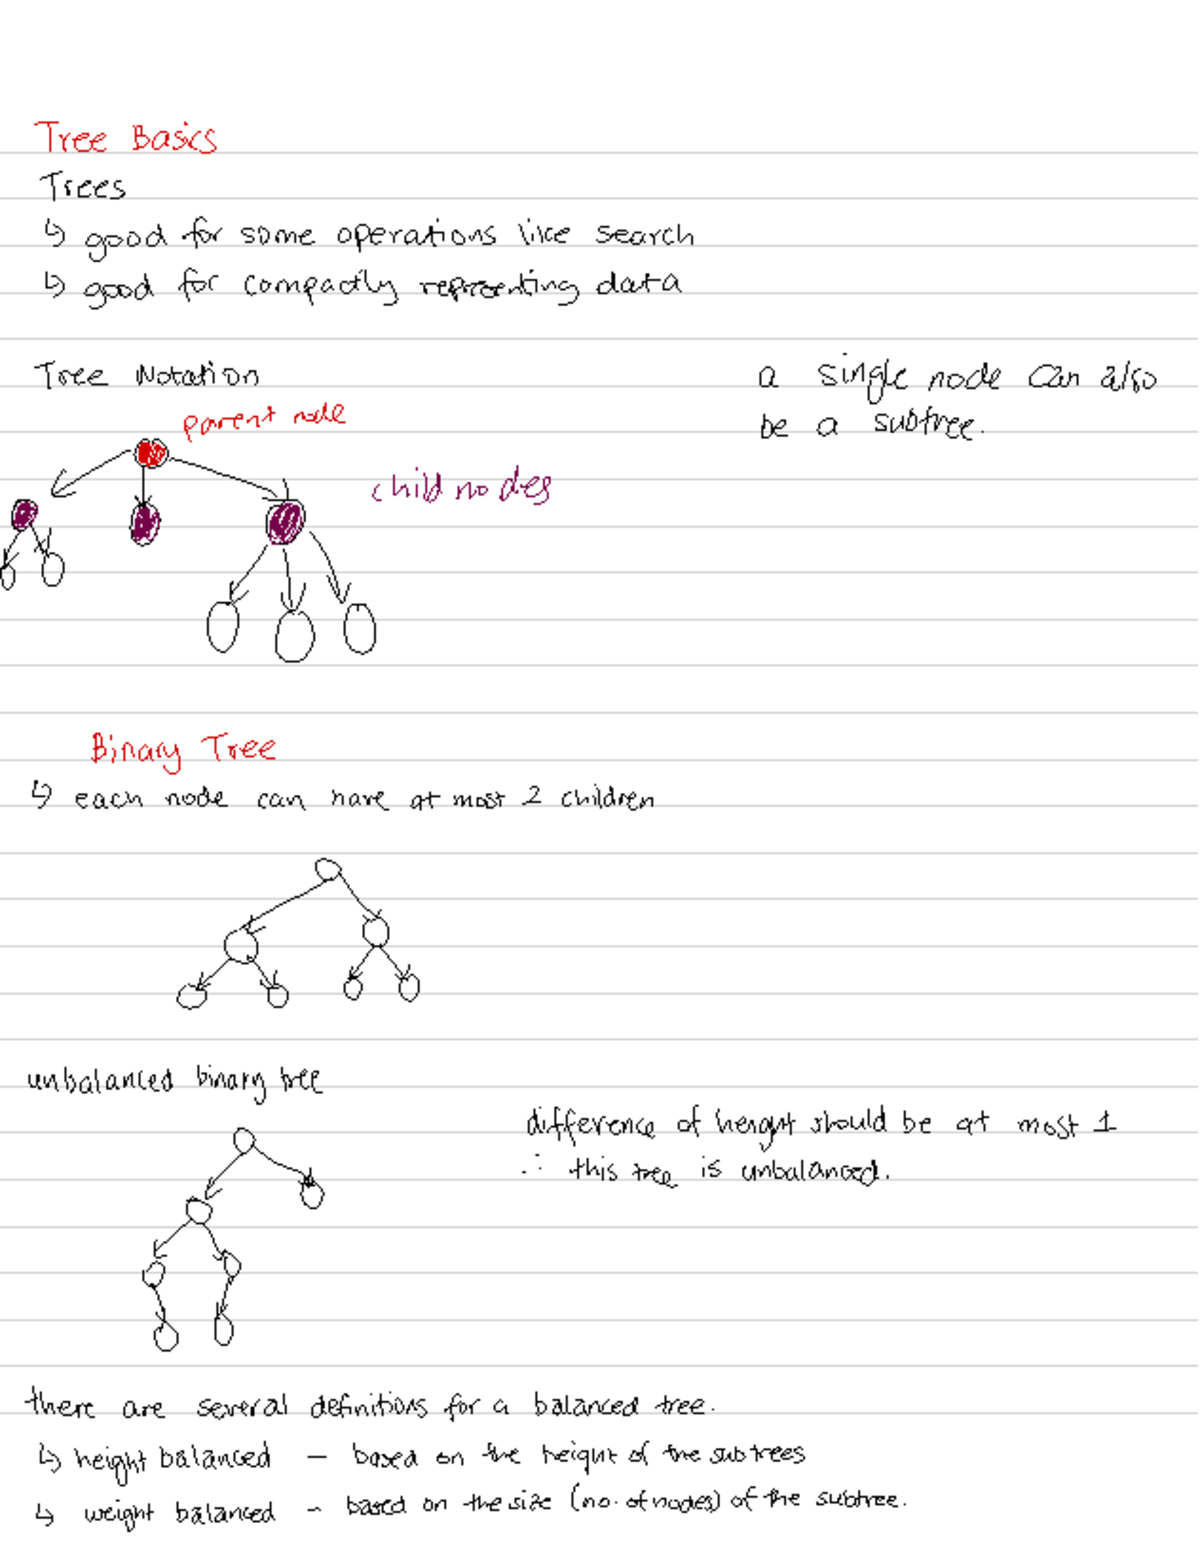 Tree Basics
Trees
↳ good for some operations like search
↳ good for compactly representing data
Tree Notation
a single node can also
be a subtree.
parent node
child nodes
Binary Tree
↳ each node can have at most 2 children
unbalanced binary tree
difference of height should be at most 1
∴ this tree is unbalanced.
there are several definitions for a balanced tree.
↳ height balanced – based on the height of the subtrees
↳ weight balanced – based on the size (no. of nodes) of the subtree.